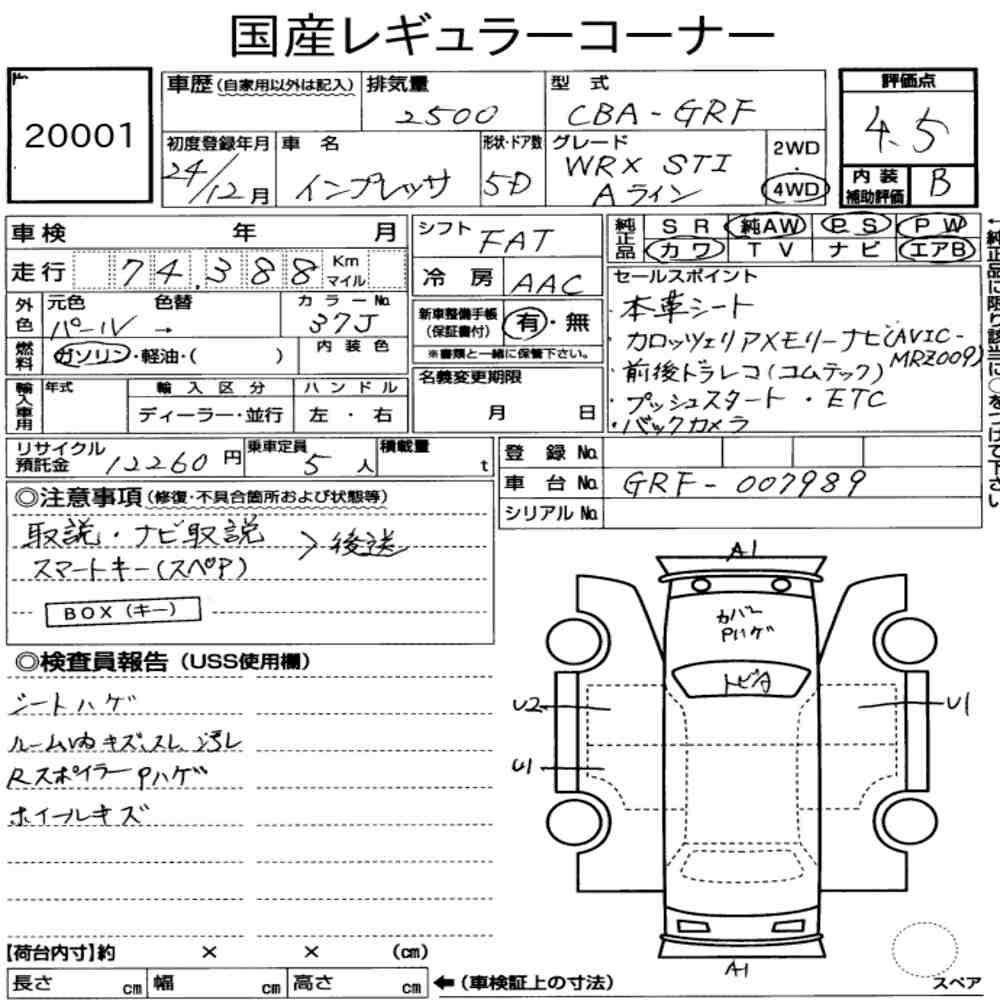 国産レギュラーコーナー
20001
車歴(自家用以外は記入) 排気量 2500 型式 CBA-GRF
評価点 4.5
初度登録年月 24/12月 車名 インプレッサ 形状・ドア数 5D グレード WRX STI Aライン 2WD・4WD
内装補助評価 B
車検 年 月 シフト FAT 純正品 SR 純AW PS PW
カワ TV ナビ エアB
走行 74,388 Km マイル 冷房 AAC
←純正品に限り該当に○をつけて下さい
外色 元色 パール 色替 → カラーNo. 37J 内装色
新車整備手帳(保証書付) 有・無
※書類と一緒に保管下さい。
燃料 ガソリン・軽油・( )
セールスポイント
本革シート
カロッツェリアXメモリーナビ(AVIC-MRZ009)
前後ドラレコ(コムテック)
プッシュスタート・ETC
バックカメラ
輸入車用 年式 輸入区分 ディーラー・並行 ハンドル 左・右
名義変更期限 月 日
リサイクル預託金 12260円 乗車定員 5人 積載量 t
登録No.
車台No. GRF-007989
シリアルNo.
◎注意事項(修復・不具合箇所および状態等)
取説・ナビ取説
スマートキー(スペア) > 後送
BOX(キー)
◎検査員報告(USS使用欄)
シートハゲ
ルーム内キズ、スレ、汚レ
Rスポイラー Pハゲ
ホイールキズ
A1
カバー
Pハゲ
トビA
U2
U1
U1
A1
スペア
【荷台内寸】約 × × (cm)
長さ cm 幅 cm 高さ cm ←(車検証上の寸法)